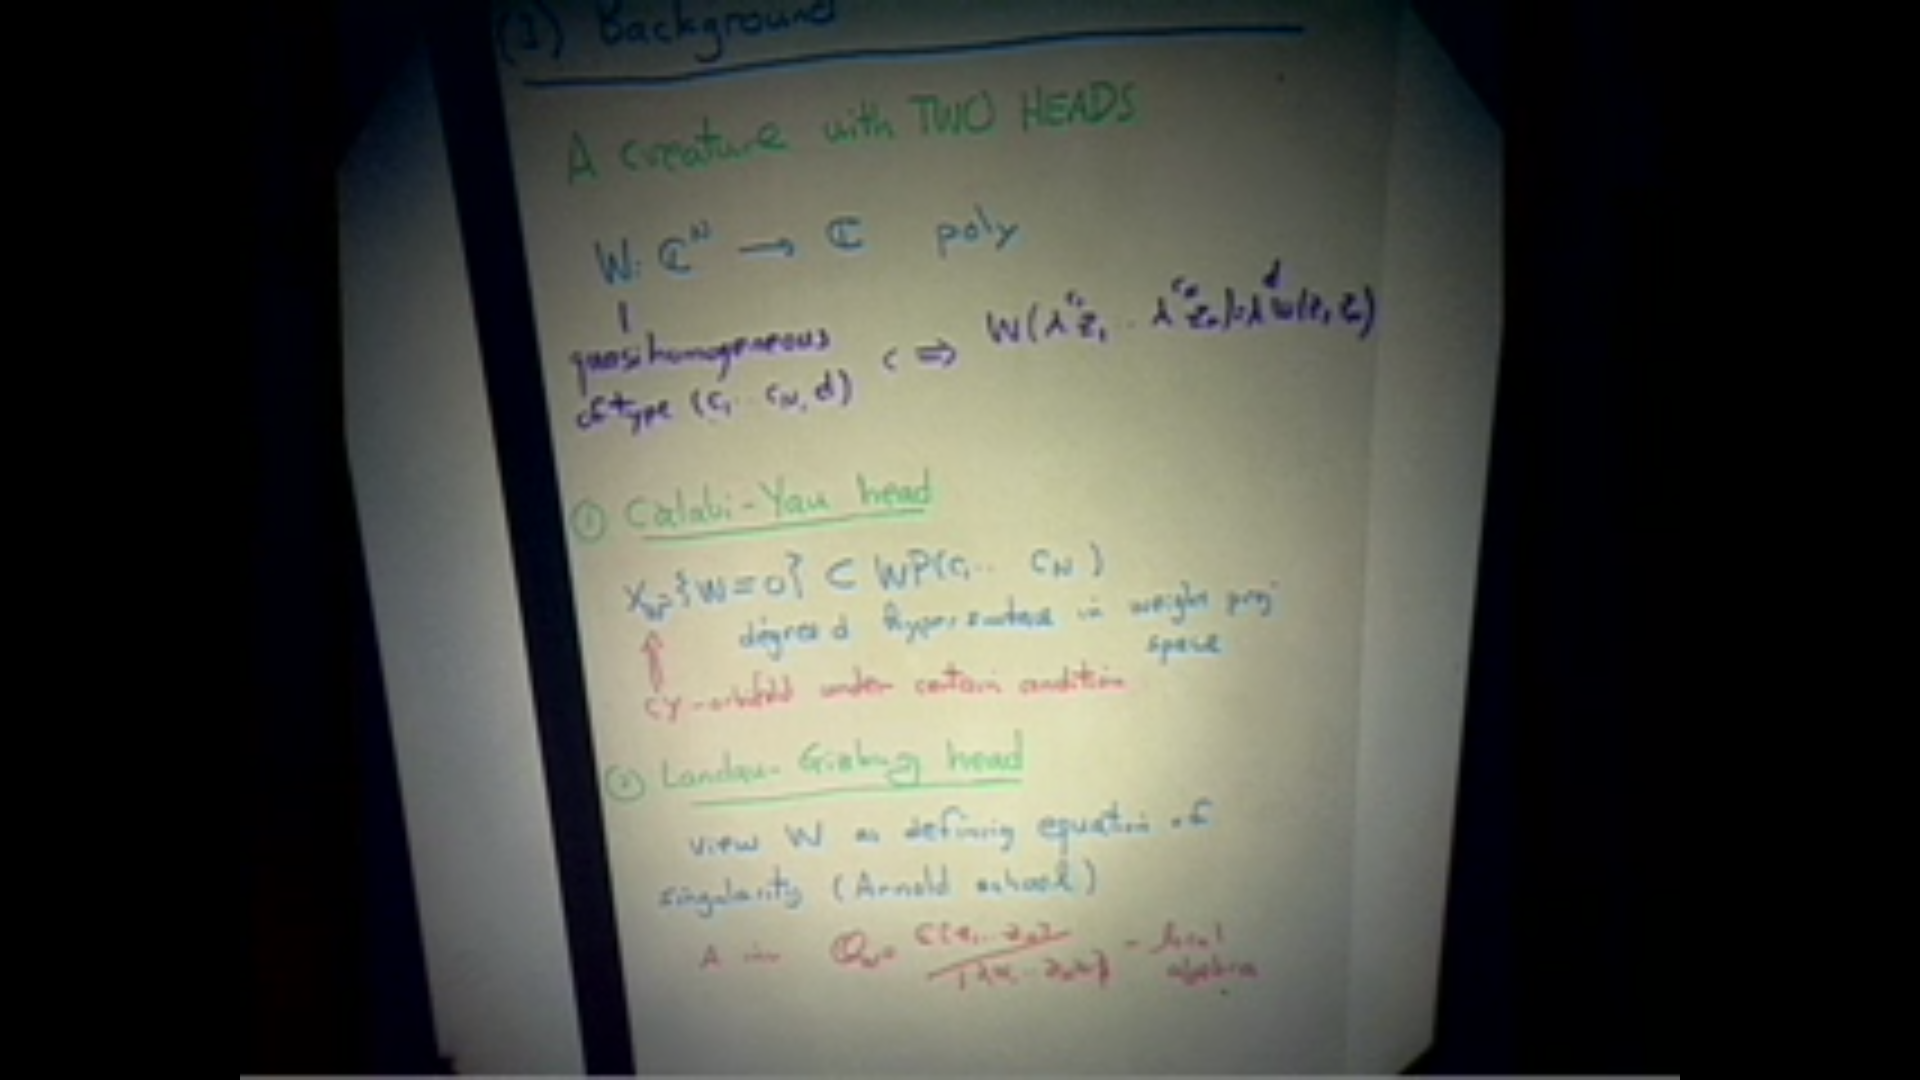 (1) Background
A creature with TWO HEADS
W: ℂ^N → ℂ poly
quasihomogeneous
of type (c₁ .. c_N, d) ⟺ W(λ^{c₁}z₁ .. λ^{c_N}z_N) = λ^d W(z₁ z_N)
① Calabi-Yau head
X_W = {W=0} ⊂ WP(c₁.. c_N)
degree d hypersurface in weight proj
space
CY-orbifold under certain condition
② Landau-Ginzburg head
view W as defining equation of
singularity (Arnold school)
Q_W = ℂ[z₁..z_N] / - local
algebra